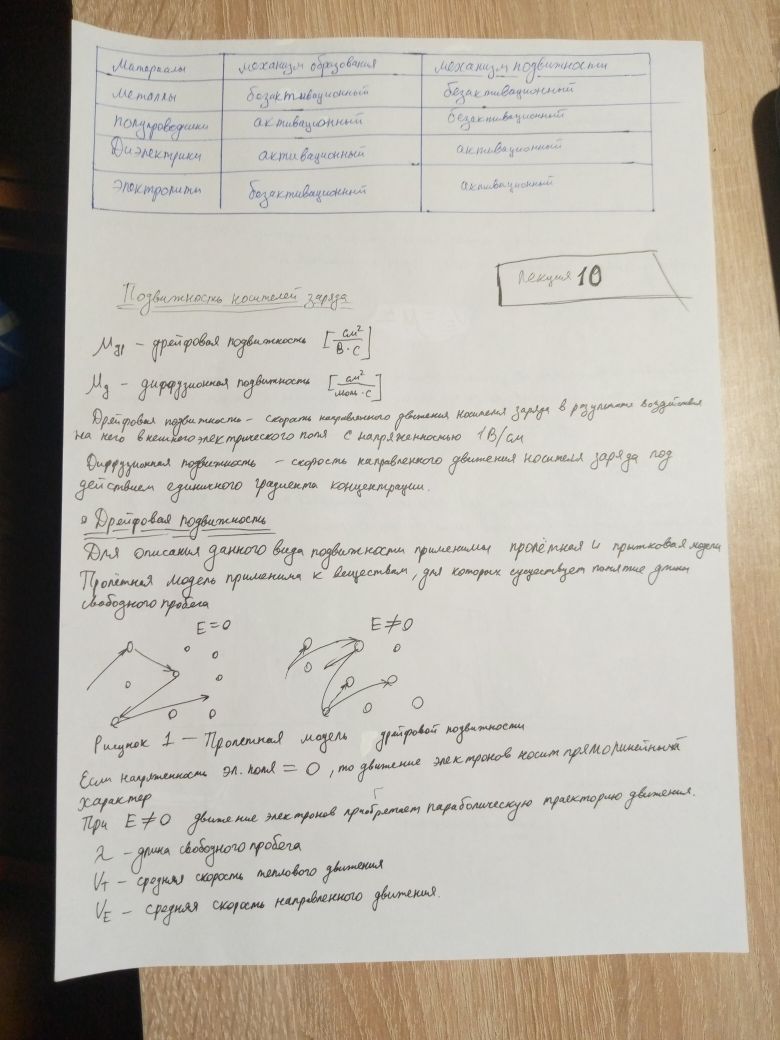 Материалы механизм образования механизм подвижности
металлы безактивационный безактивационный
полупроводники активационный безактивационный
Диэлектрики активационный активационный
электролиты безактивационный активационный
Лекция 10
Подвижность носителей заряда
Mдр – дрейфовая подвижность [см²/В·с]
Mд – диффузионная подвижность [см²/мом·с]
Дрейфовая подвижность – скорость направленного движения носителя заряда в результате воздействия
на него внешнего электрического поля с напряженностью 1В/см
Диффузионная подвижность – скорость направленного движения носителя заряда под
действием единичного градиента концентрации.
Дрейфовая подвижность
Для описания данного вида подвижности применимы пролётная и прыжковая модели
Пролётная модель применима к веществам, для которых существует понятие длины
свободного пробега
E=0 E≠0
Рисунок 1 – Пролетная модель дрейфовой подвижности
Если напряженность эл. поля = 0, то движение электронов носит прямолинейный
характер
При E≠0 движение электронов приобретает параболическую траекторию движения.
λ – длина свободного пробега
UT – средняя скорость теплового движения
UE – средняя скорость направленного движения.